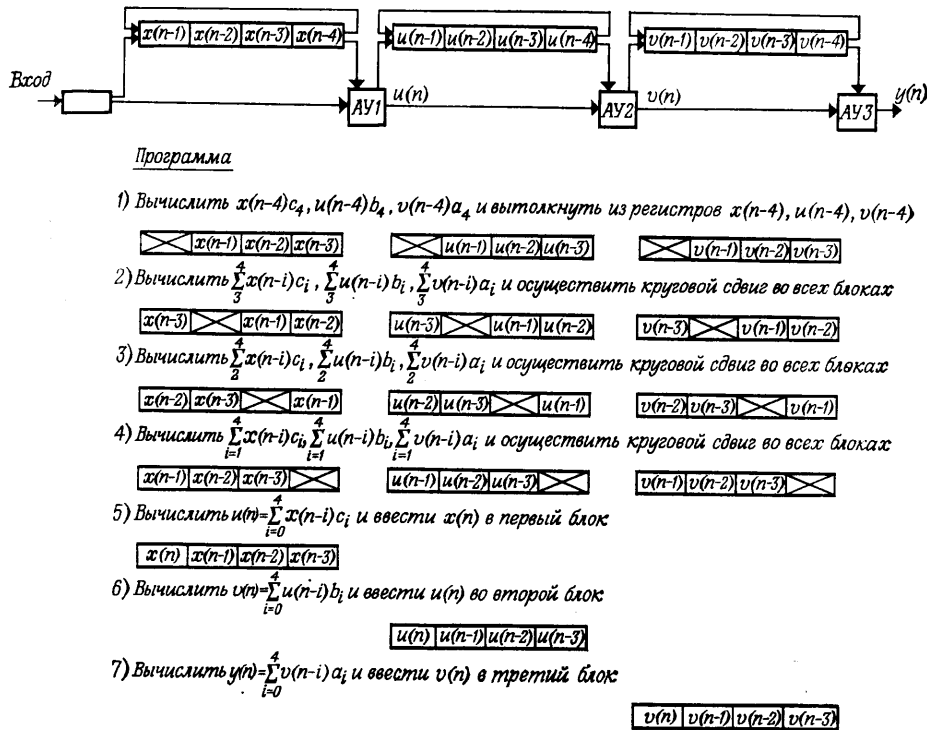 x(n-1) x(n-2) x(n-3) x(n-4) u(n-1) u(n-2) u(n-3) u(n-4) v(n-1) v(n-2) v(n-3) v(n-4)
Вход АУ1 u(n) АУ2 v(n) АУ3 y(n)
Программа
1) Вычислить x(n-4)c₄, u(n-4)b₄, v(n-4)a₄ и вытолкнуть из регистров x(n-4), u(n-4), v(n-4)
x(n-1) x(n-2) x(n-3) u(n-1) u(n-2) u(n-3) v(n-1) v(n-2) v(n-3)
2) Вычислить ∑₃⁴ x(n-i)cᵢ, ∑₃⁴ u(n-i)bᵢ, ∑₃⁴ v(n-i)aᵢ и осуществить круговой сдвиг во всех блоках
x(n-3) x(n-1) x(n-2) u(n-3) u(n-1) u(n-2) v(n-3) v(n-1) v(n-2)
3) Вычислить ∑₂⁴ x(n-i)cᵢ, ∑₂⁴ u(n-i)bᵢ, ∑₂⁴ v(n-i)aᵢ и осуществить круговой сдвиг во всех блоках
x(n-2) x(n-3) x(n-1) u(n-2) u(n-3) u(n-1) v(n-2) v(n-3) v(n-1)
4) Вычислить ∑ᵢ₌₁⁴ x(n-i)cᵢ, ∑ᵢ₌₁⁴ u(n-i)bᵢ, ∑ᵢ₌₁⁴ v(n-i)aᵢ и осуществить круговой сдвиг во всех блоках
x(n-1) x(n-2) x(n-3) u(n-1) u(n-2) u(n-3) v(n-1) v(n-2) v(n-3)
5) Вычислить u(n)=∑ᵢ₌₀⁴ x(n-i)cᵢ и ввести x(n) в первый блок
x(n) x(n-1) x(n-2) x(n-3)
6) Вычислить v(n)=∑ᵢ₌₀⁴ u(n-i)bᵢ и ввести u(n) во второй блок
u(n) u(n-1) u(n-2) u(n-3)
7) Вычислить y(n)=∑ᵢ₌₀⁴ v(n-i)aᵢ и ввести v(n) в третий блок
v(n) v(n-1) v(n-2) v(n-3)